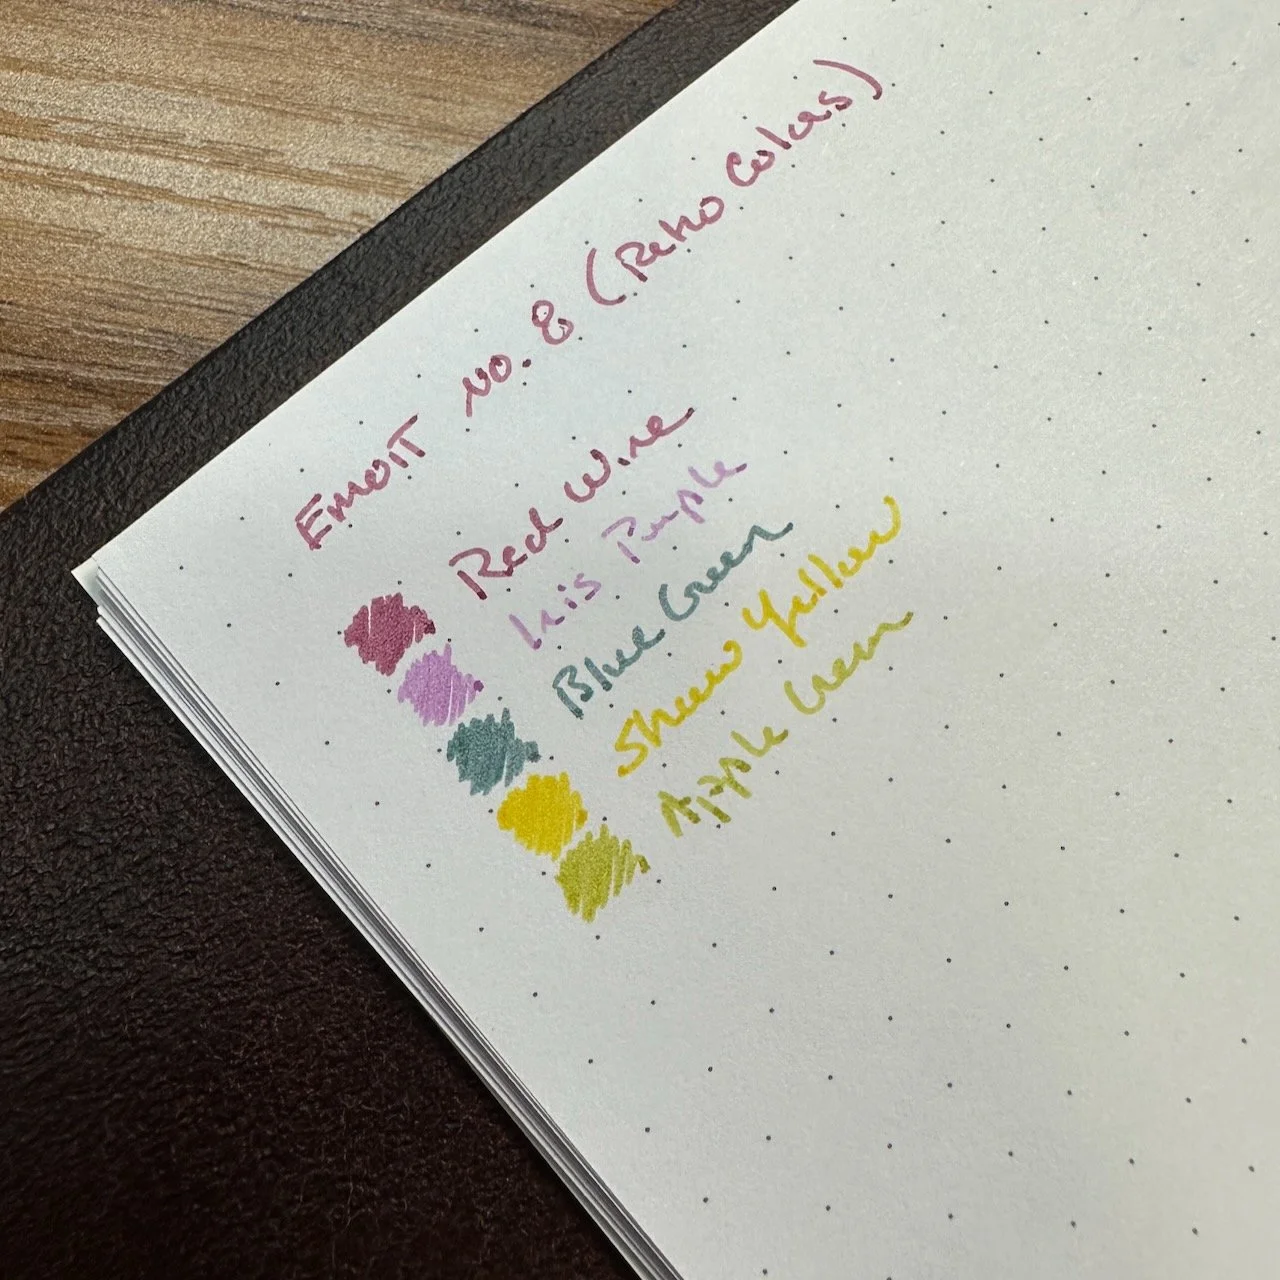 EMOTT NO. 8 (Retro Colors)
Red Wine
Iris Purple
Blue Green
Straw Yellow
Apple Green